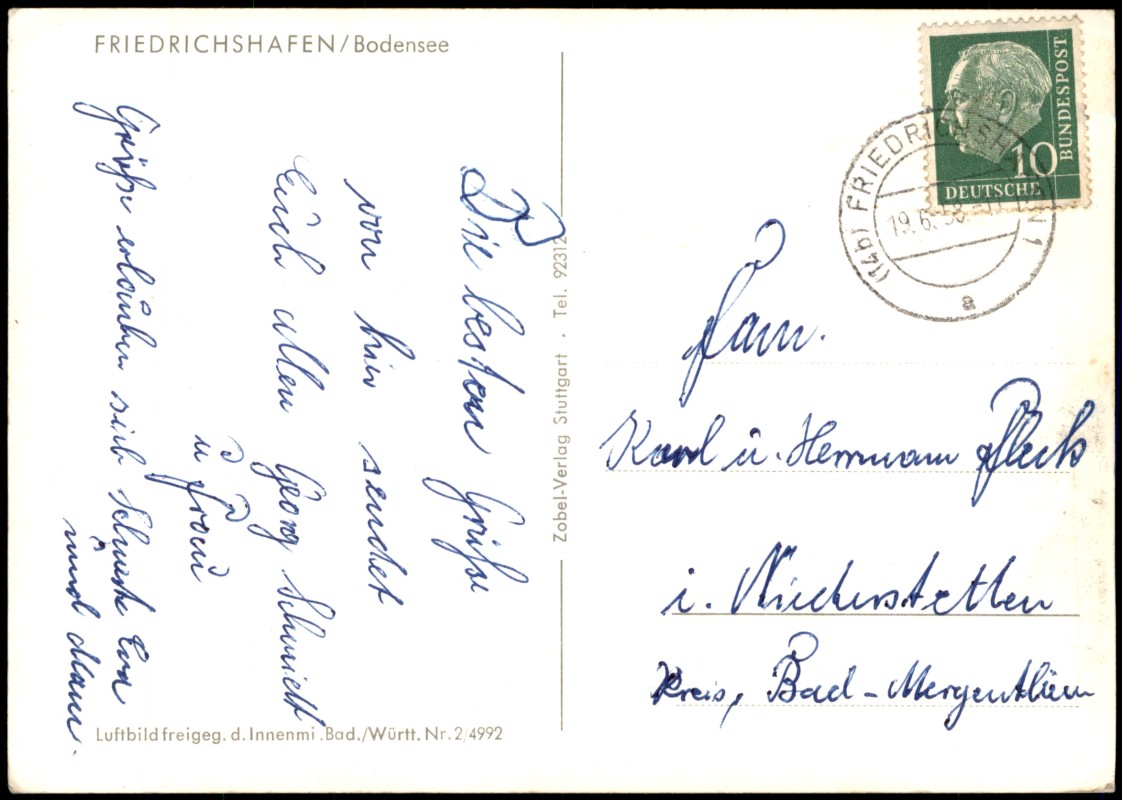 FRIEDRICHSHAFEN/Bodensee
Die besten Grüße
von hier sendet
Euch allen Georg Schmidt
u Frau
Grüße erlauben sich Schwester Eva
und Mann.
Zobel-Verlag Stuttgart · Tel. 92312
Luftbild freigeg. d. Innenmi .Bad./Württ. Nr. 2/4992
BUNDESPOST
10
DEUTSCHE
(14b) FRIEDRICHSHAFEN 1
19.6.58
a
Fam.
Karl u. Herrmann Fleck
i. Niederstetten
Kreis, Bad-Mergentheim